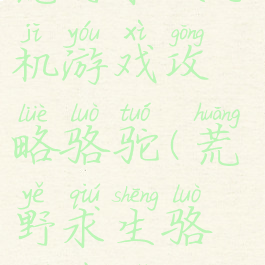 jī yóu xì gōng
机游戏攻
lüè luò tuó huāng
略骆驼(荒
yě qiú shēng luò
野求生骆